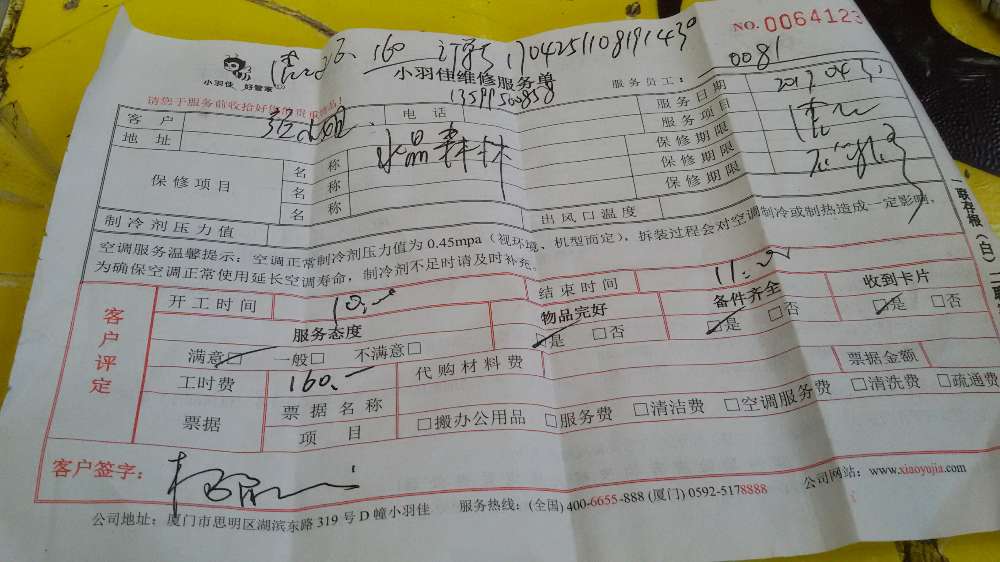 NO.0064123
160 170425110819143
小羽佳 好管家
小羽佳维修服务单
服务员工: 0081
请您于服务前收拾好您的贵重物品!
客户 电话 13599500858 服务日期
地址 水晶森林 服务项目
保修项目 名称 保修期限
名称 保修期限
名称 保修期限
制冷剂压力值 出风口温度
空调服务温馨提示:空调正常制冷剂压力值为0.45mpa(视环境、机型而定),拆装过程会对空调制冷或制热造成一定影响,
为确保空调正常使用延长空调寿命,制冷剂不足时请及时补充。
联存根(白)
客户评定
开工时间 结束时间
服务态度 物品完好 备件齐全 收到卡片
满意□ 一般□ 不满意□ □是 □否 □是 □否 □是 □否
工时费 160. 代购材料费
票据 票据名称 票据金额
项目 □搬办公用品 □服务费 □清洁费 □空调服务费 □清洗费 □疏通费
客户签字:
公司地址:厦门市思明区湖滨东路319号D幢小羽佳 服务热线:(全国)400-6655-888(厦门)0592-5178888 公司网站:www.xiaoyujia.com